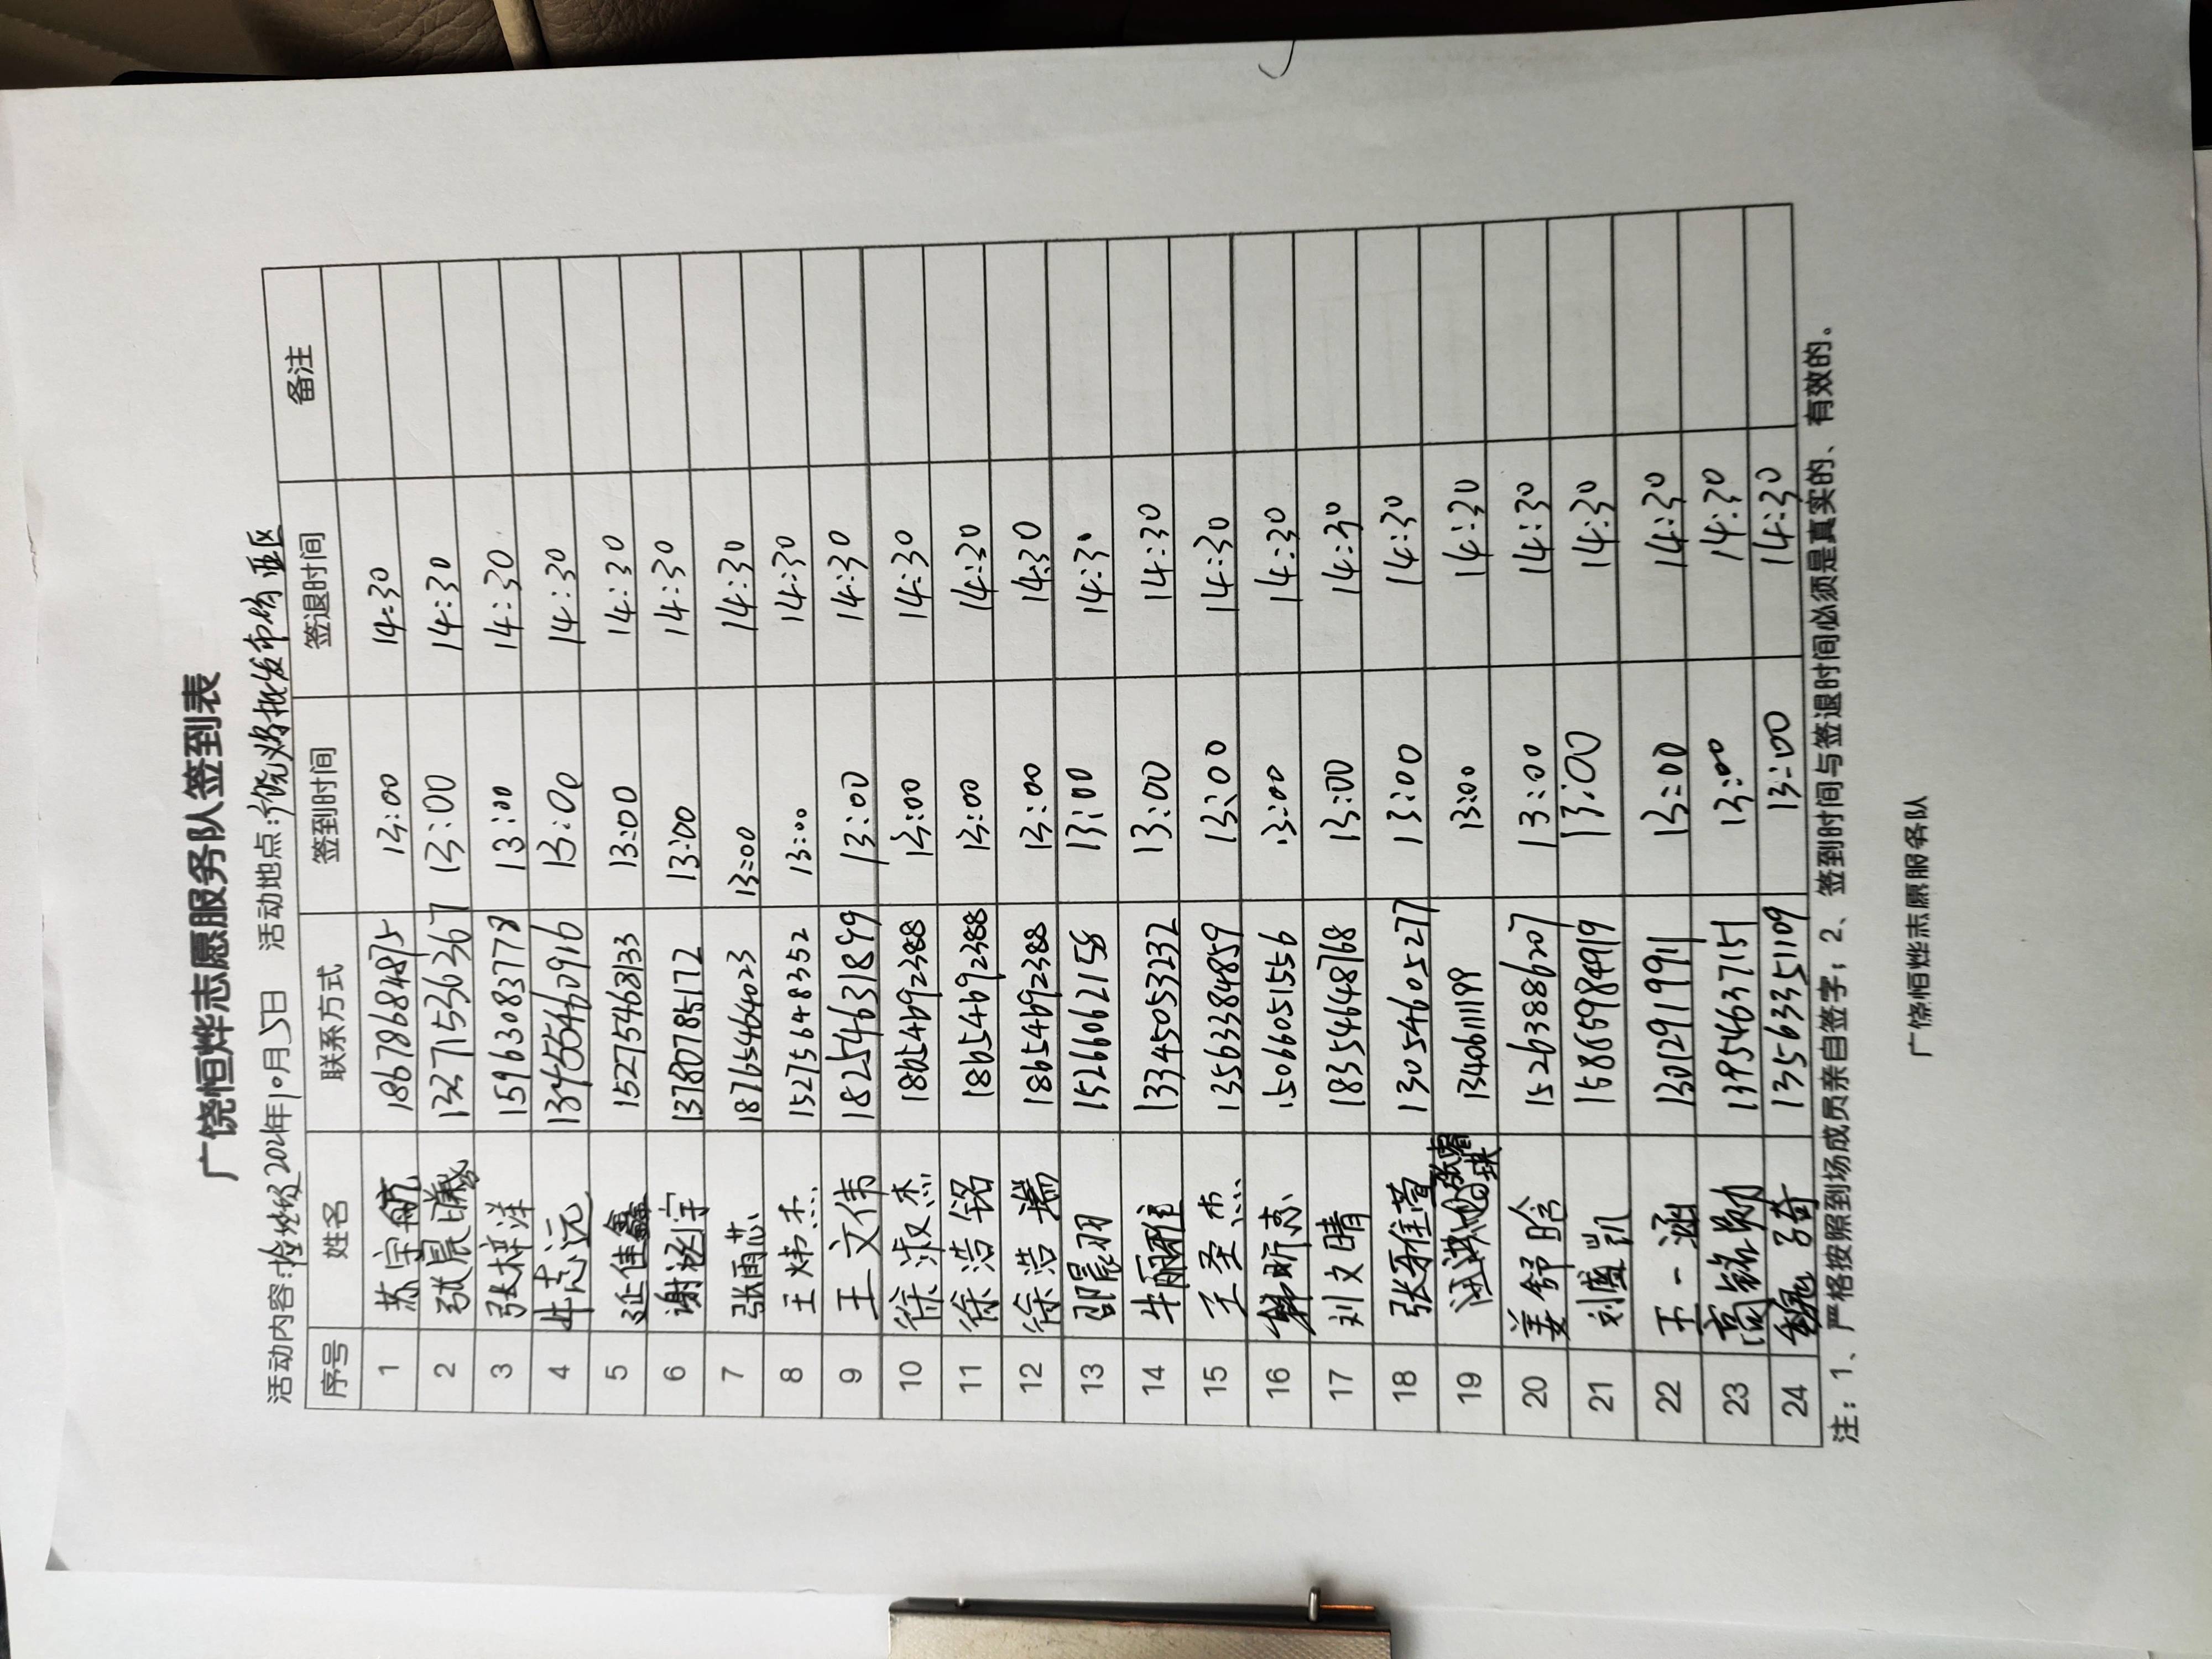 广饶恒烨志愿服务队签到表
活动内容:捡垃圾 2021年10月5日 活动地点:批发市场西区
序号 姓名 联系方式 签到时间 签退时间 备注
1 苏宇航 18678684875 13:00 14:30
2 张晨曦 13271536367 13:00 14:30
3 张梓洋 15963083778 13:00 14:30
4 志远 13455460916 13:00 14:30
5 延佳鑫 15275463133 13:00 14:30
6 谢丞宇 13780785172 13:00 14:30
7 张雨芯 18765464023 13:00 14:30
8 王炜杰 15275648352 13:00 14:30
9 王文伟 18254631899 13:00 14:30
10 徐淑杰 18654692388 13:00 14:30
11 徐浩铭 18654692388 13:00 14:30
12 徐浩瑞 18654692388 13:00 14:30
13 邵晨羽 15266062158 13:00 14:30
14 牛丽雅 13345053232 13:00 14:30
15 王圣杰 13563384859 13:00 14:30
16 韩昕志 15066051556 13:00 14:30
17 刘文晴 18354648768 13:00 14:30
18 张雅萱 13054605277 13:00 14:30
19 13406111199 13:00 14:30
20 姜舒晗 15263886207 13:00 14:30
21 刘盛凯 15865984919 13:00 14:30
22 王一涵 13012919911 13:00 14:30
23 高铭 13954637151 13:00 14:30
24 魏子奇 13563351109 13:00 14:30
注：1、严格按照到场成员亲自签字；2、签到时间与签退时间必须是真实的、有效的。
广饶恒烨志愿服务队